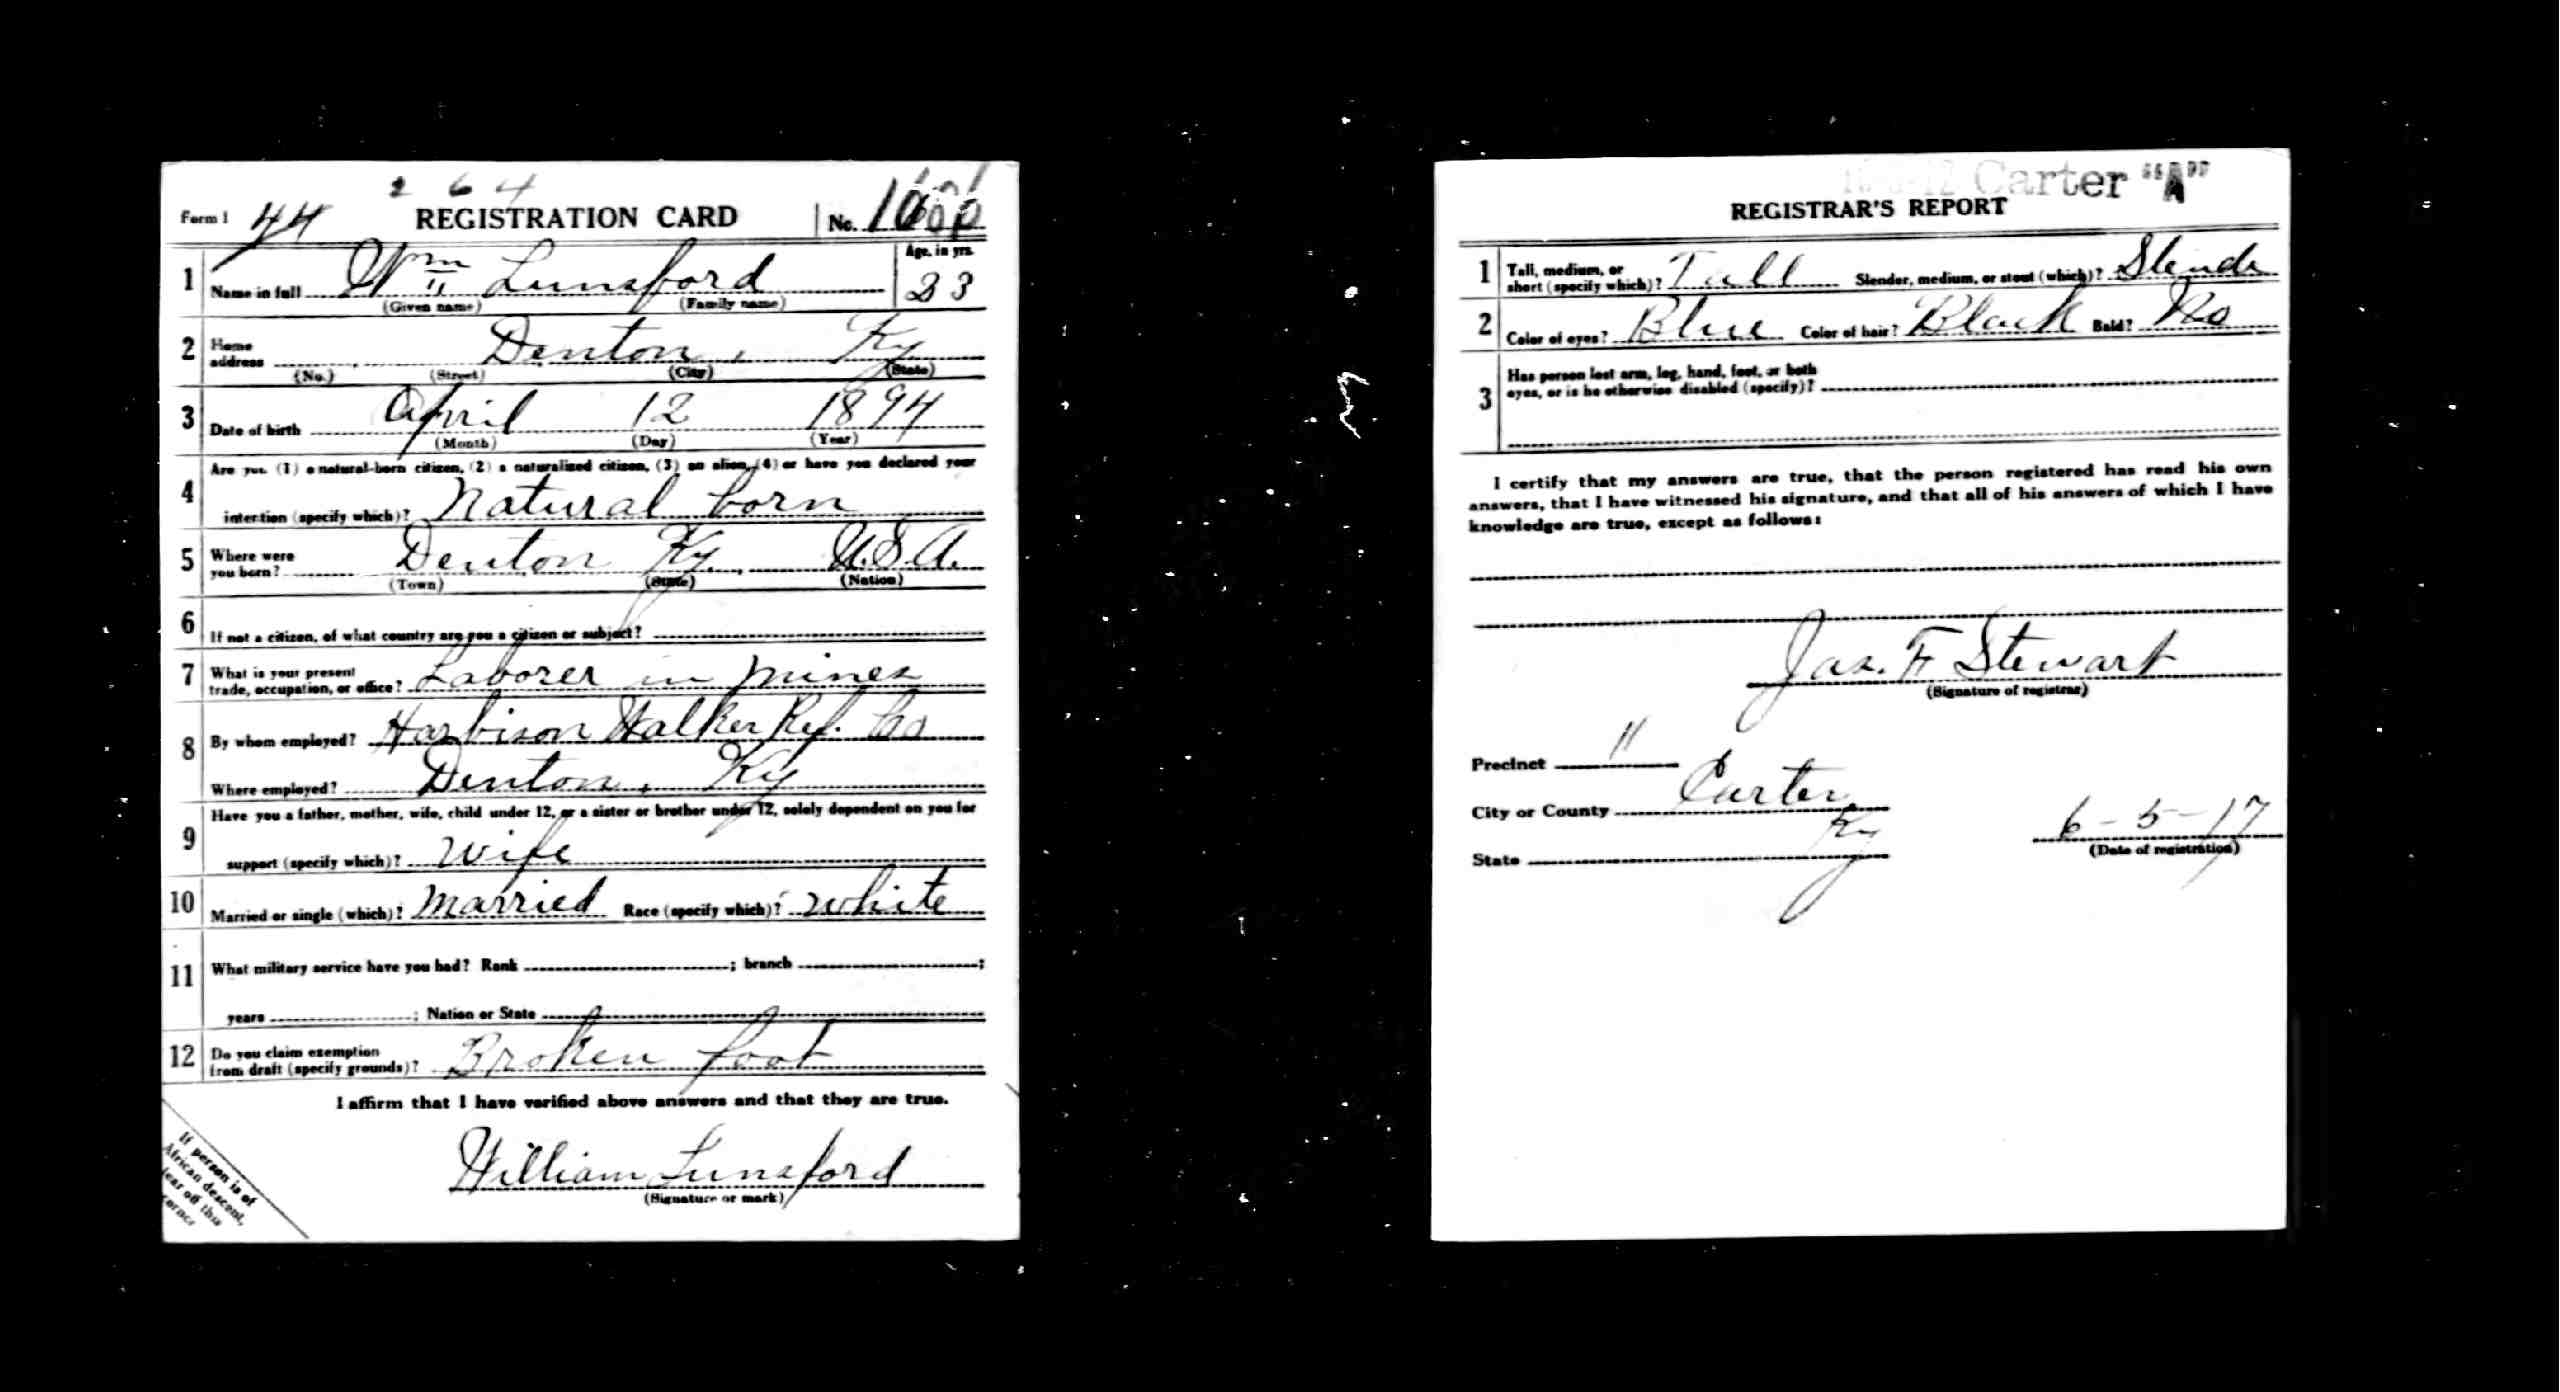 2 6 4
Form 1 44 REGISTRATION CARD No.
1 Name in full Wm Lunsford Age, in yrs. 23
(Given name) (Family name)
2 Home address Denton, Ky
(No.) (Street) (City) (State)
3 Date of birth April 12 1894
(Month) (Day) (Year)
Are you (1) a natural-born citizen, (2) a naturalized citizen, (3) an alien, (4) or have you declared your
4 intention (specify which)? Natural born
5 Where were you born? Denton Ky. U.S.A.
(Town) (State) (Nation)
6 If not a citizen, of what country are you a citizen or subject?
7 What is your present trade, occupation, or office? Laborer in mines
8 By whom employed? Harbison Walker Ref. Co
Where employed? Denton, Ky
Have you a father, mother, wife, child under 12, or a sister or brother under 12, solely dependent on you for
9 support (specify which)? Wife
10 Married or single (which)? Married Race (specify which)? White
11 What military service have you had? Rank ; branch ;
years ; Nation or State
12 Do you claim exemption from draft (specify grounds)? Broken foot
I affirm that I have verified above answers and that they are true.
William Lunsford
(Signature or mark)
If person is of
African descent,
tear off this
corner
Carter "A"
REGISTRAR'S REPORT
1 Tall, medium, or short (specify which)? Tall Slender, medium, or stout (which)? Slende
2 Color of eyes? Blue Color of hair? Black Bald? No
3 Has person lost arm, leg, hand, foot, or both eyes, or is he otherwise disabled (specify)?
I certify that my answers are true, that the person registered has read his own
answers, that I have witnessed his signature, and that all of his answers of which I have
knowledge are true, except as follows:
Jas. F Stewart
(Signature of registrar)
Precinct 11
City or County Carter
State Ky 6-5-17
(Date of registration)